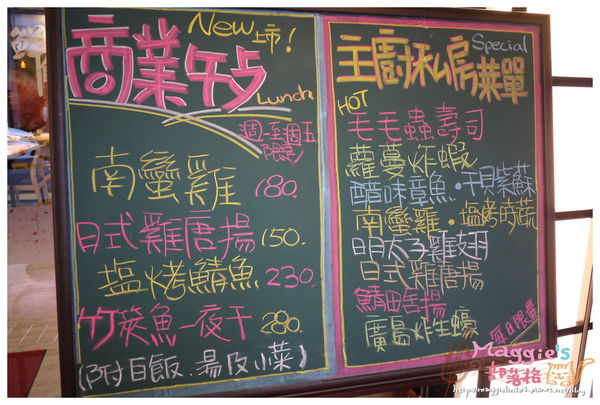 New上市!
商業午点
Lunch
週一至週五
限定
南蠻雞 180.
日式雞唐揚 150.
塩烤鯖魚 230.
竹筴魚一夜干 280.
(附白飯、湯及小菜)
Special
主廚私房菜單
HOT
毛毛蟲壽司
蘿蔓炸蝦
醋味章魚・干貝紫蘇
南蠻雞・塩烤時蔬
明太子雞翅
日式雞唐揚
廣島炸生蠔
每日限量
Maggie's
部落格